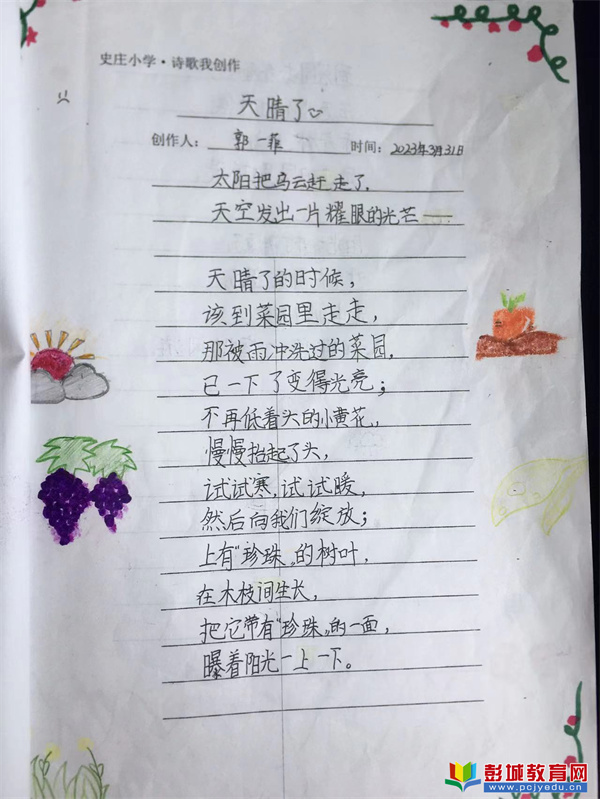 史庄小学·诗歌我创作
天晴了
创作人：郭一菲 时间：2023年3月31日
太阳把乌云赶走了，
天空发出一片耀眼的光芒……
天晴了的时候，
该到菜园里走走，
那被雨冲洗过的菜园，
已一下了变得光亮；
不再低着头的小黄花，
慢慢抬起了头，
试试寒，试试暖，
然后向我们绽放；
上有“珍珠”的树叶，
在木枝间生长，
把它带有“珍珠”的一面，
曝着阳光一上一下。
彭城教育网
www.pcjyedu.cn